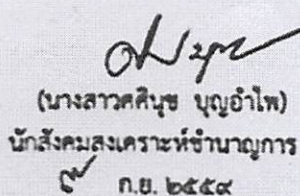 (นางสาวศศินุช บุญอำไพ)
นักสังคมสงเคราะห์ชำนาญการ
๙ ก.ย. ๒๕๕๙